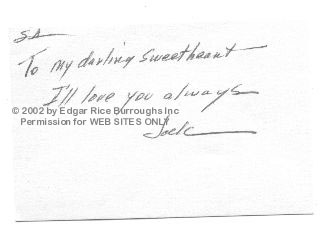 To my darling sweetheart
I'll love you always
© 2002 by Edgar Rice Burroughs Inc
Permission for WEB SITES ONLY
Jack